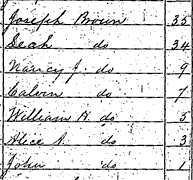 Joseph Brown 35
Leah do 34
Nancy J. do 9
Calvin do 7
William H. do 5
Alice A. do 3
John do 1